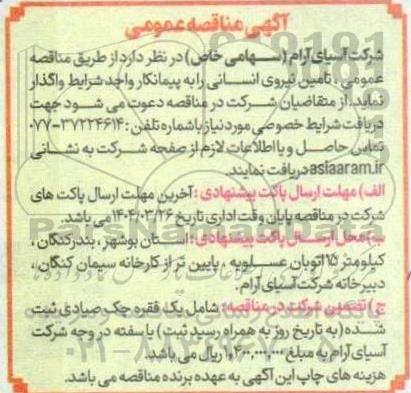 آگهی مناقصه عمومی
شرکت آسیای آرام (سهامی خاص) در نظر دارد از طریق مناقصه
عمومی، تامین نیروی انسانی را به پیمانکار واجد شرایط واگذار
نماید. از متقاضیان شرکت در مناقصه دعوت می شود جهت
دریافت شرایط خصوصی مورد نیاز با شماره تلفن: ۳۷۲۲۴۶۱۴-۰۷۷
تماس حاصل و یا اطلاعات لازم از صفحه شرکت به نشانی
asiaaram.ir دریافت نمایند.
الف) مهلت ارسال پاکت پیشنهادی: آخرین مهلت ارسال پاکت های
شرکت در مناقصه پایان وقت اداری تاریخ ۱۴۰۴/۰۳/۲۶ می باشد.
ب) محل ارسال پاکت پیشنهادی: استان بوشهر، بندر کنگان،
کیلومتر ۱۵ اتوبان عسلویه، پایین تر از کارخانه سیمان کنگان،
دبیرخانه شرکت آسیای آرام.
ج) تضمین شرکت در مناقصه: شامل یک فقره چک صیادی ثبت
شده (به تاریخ روز به همراه رسید ثبت) یا سفته در وجه شرکت
آسیای آرام به مبلغ ۱,۴۰۰,۰۰۰,۰۰۰ ریال می باشد.
هزینه های چاپ این آگهی به عهده برنده مناقصه می باشد.
ParsNamadData